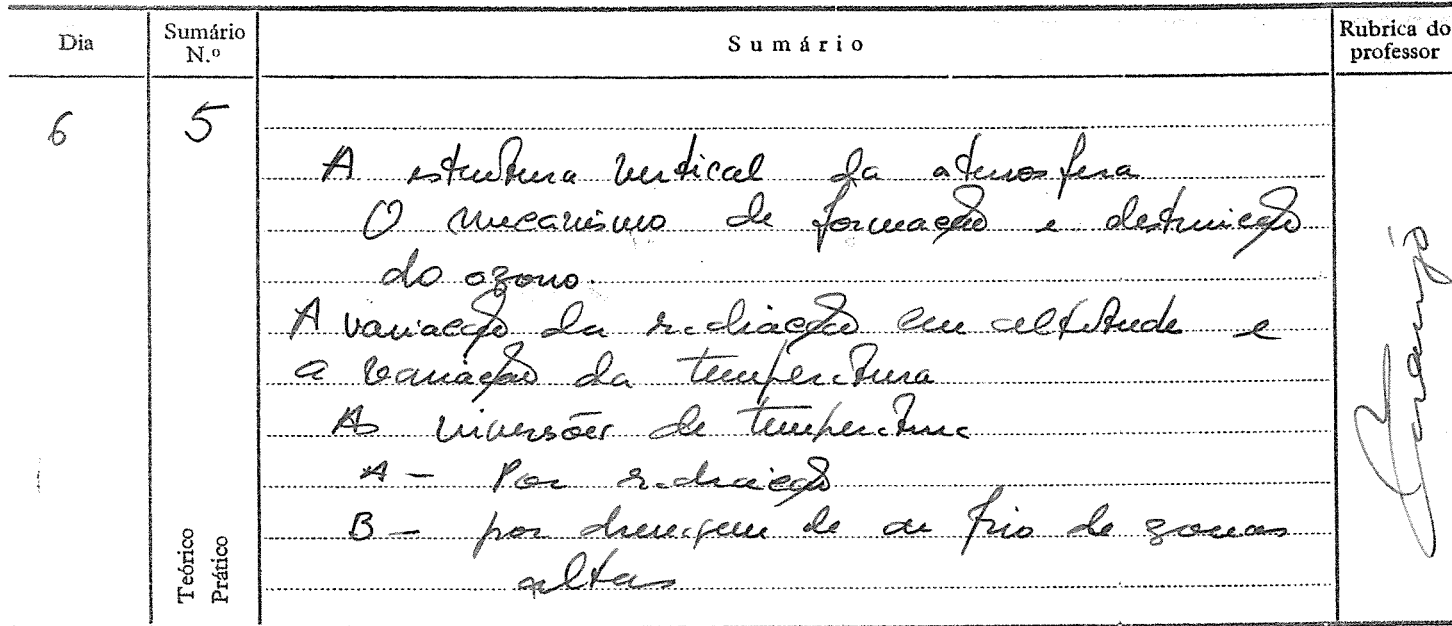 Dia
Sumário N.º
Sumário
Rubrica do professor
6
5
A estrutura vertical da atmosfera
O mecanismo de formação e destruição
do ozono.
A variação da radiação em altitude e
a variação da temperatura
As inversões de temperatura
A - Por radiação
B - por drenagem de ar frio de zonas
altas
Teórico
Prático